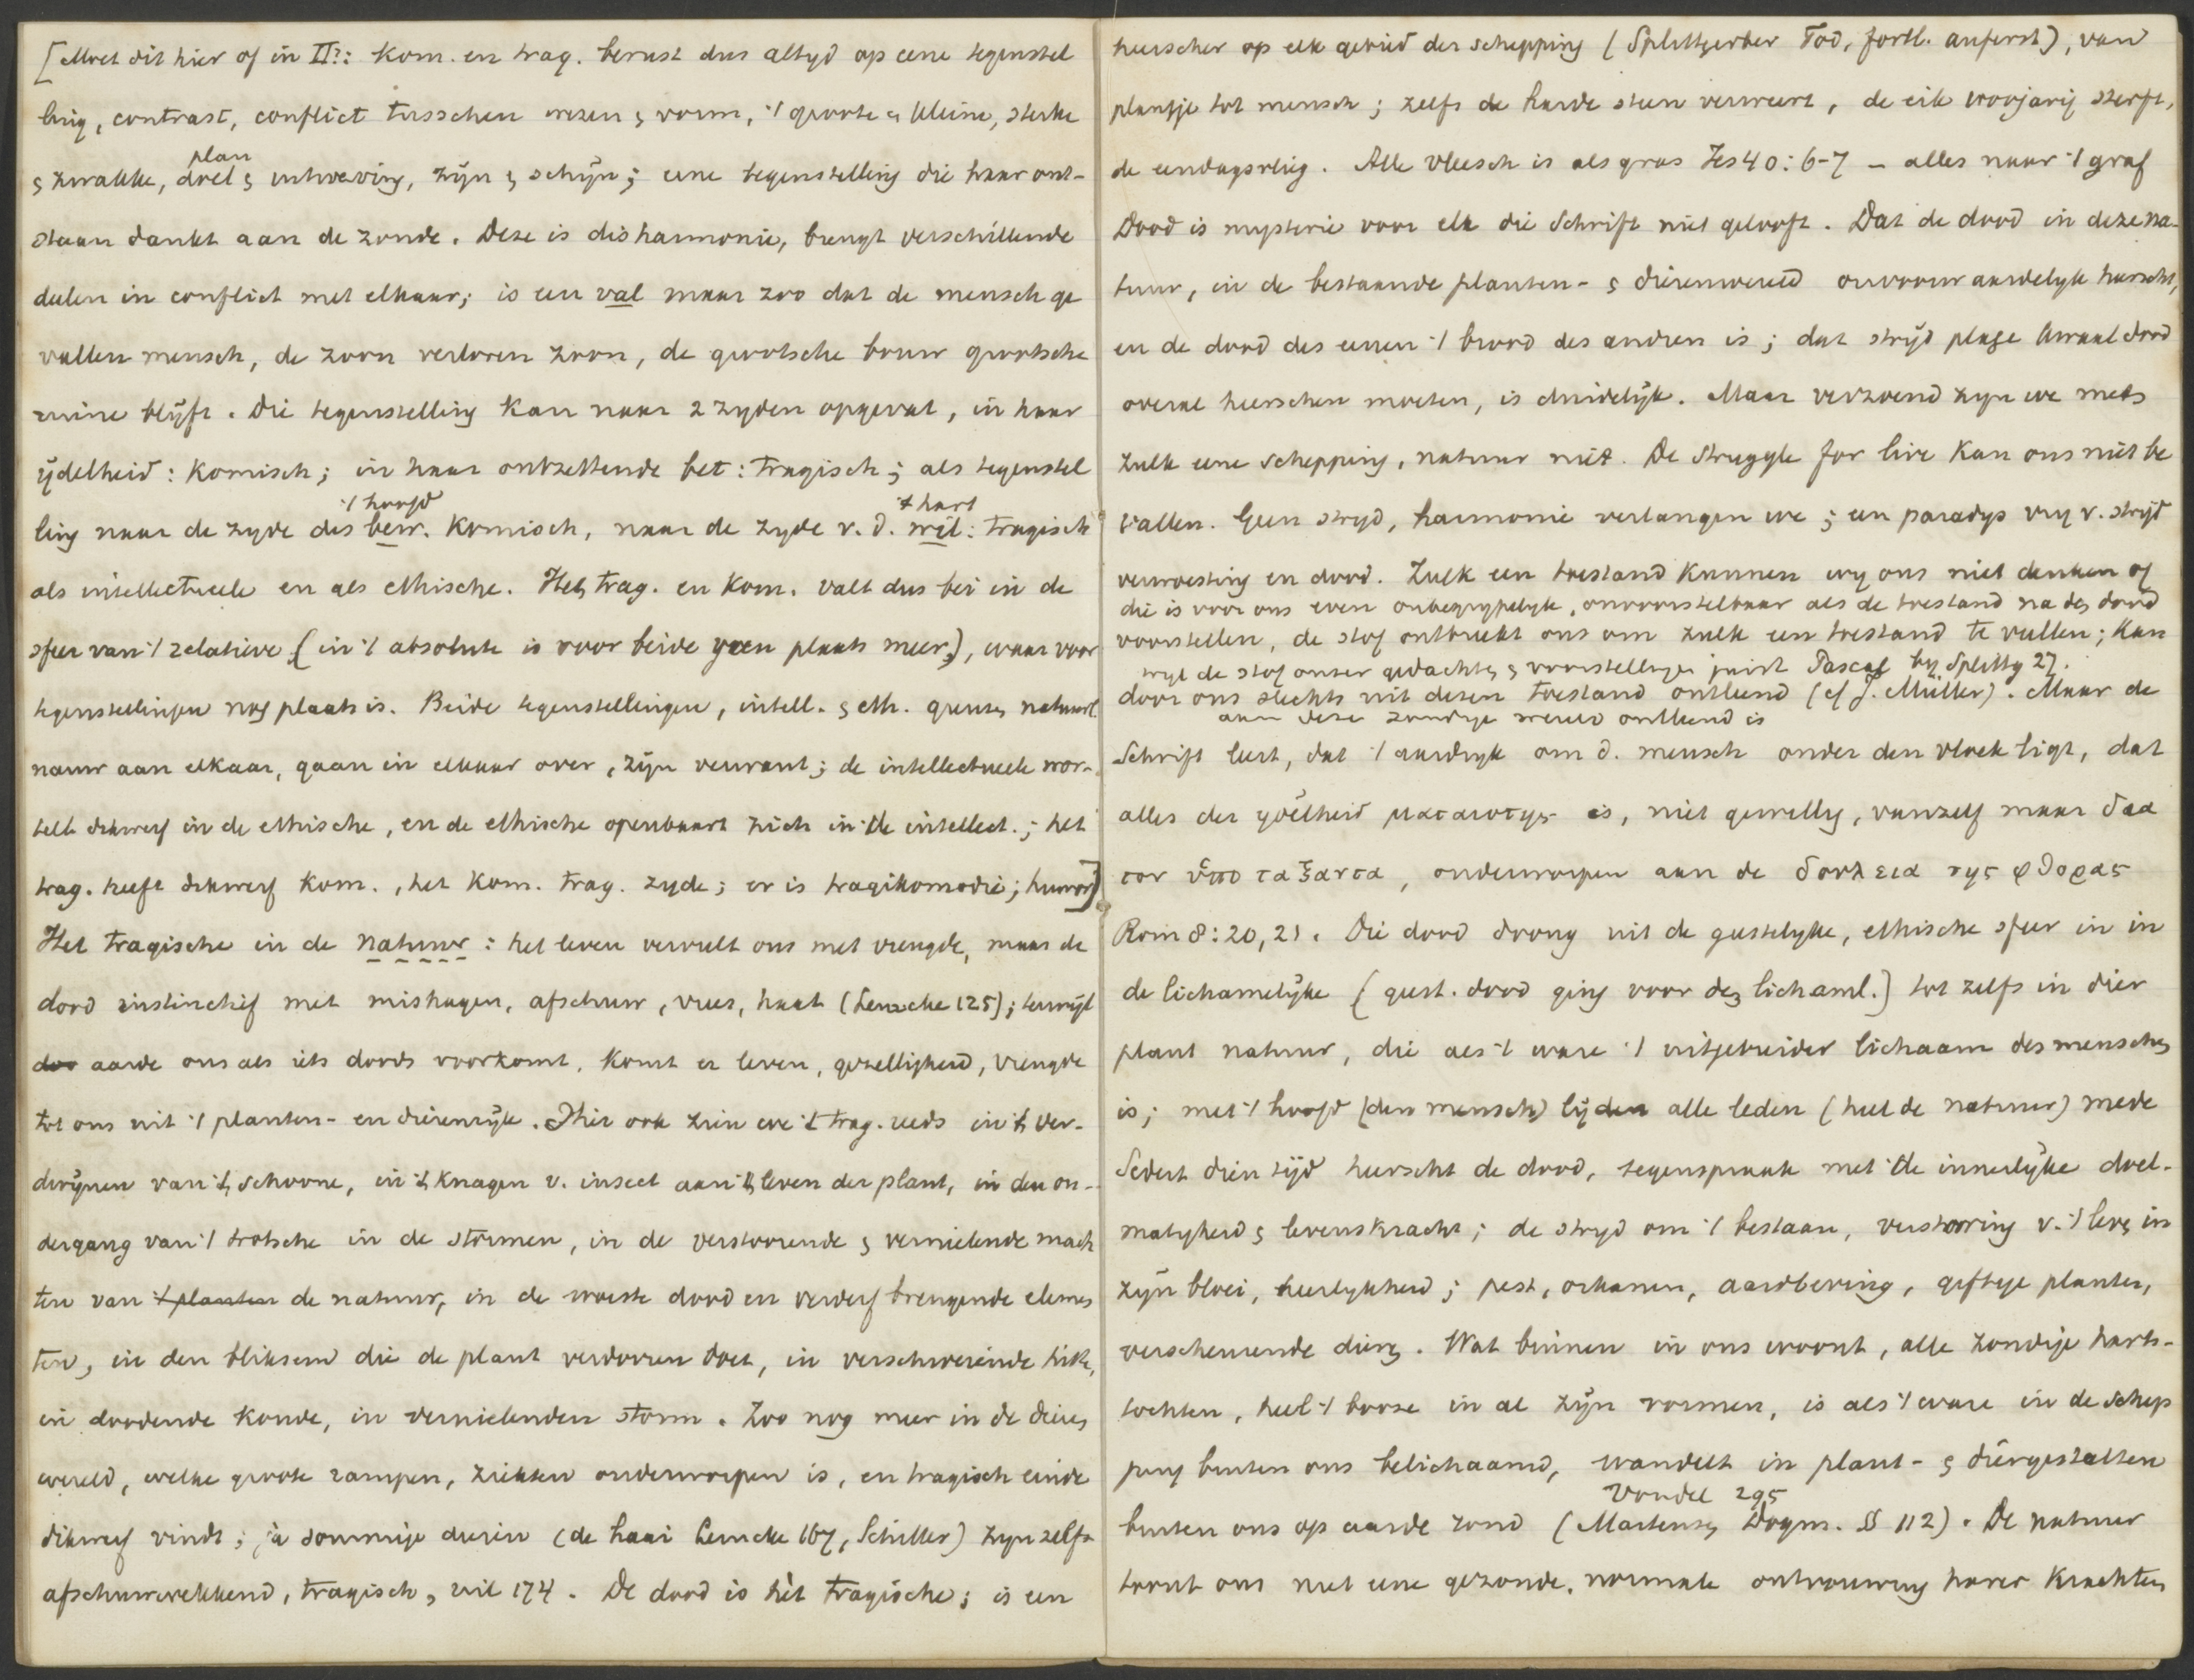 [Moet dit hier of in II?: Kom. en trag. berust dus altyd op eene tegenstel
ling, contrast, conflict tusschen wezen & vorm, 't groote & kleine, sterke
plan
& zwakke, doel & uitvoering, zijn & schijn; eene tegenstelling die haar ont-
staan dankt aan de zonde. Deze is disharmonie, brengt verschillende
deelen in conflict met elkaar; is een val maar zoo dat de mensch ge
vallen mensch, de zoon verloren zoon, de grootsche bouw grootsche
ruine blijft. Die tegenstelling kan naar 2 zyden opgevat, in haar
ijdelheid: Komisch; in haar ontzettende bet: tragisch; als tegenstel
't hoofd 't hart
ling naar de zyde des bew. Komisch, naar de zyde v. d. wil: tragisch
als intellectueele en als ethische. Het trag. en Kom. valt dus bei in de
sfeer van 't relatieve (in 't absolute is voor beide geen plaats meer), waar voor
tegenstellingen nog plaats is. Beide tegenstellingen, intell. & eth. grenzen natuurl.
nauw aan elkaar, gaan in elkaar over, zijn verwant; de intellectueele wor-
telt dikwerf in de ethische, en de ethische openbaart zich in de intellect.; het
trag. heeft dikwerf Kom., het Kom. trag. zyde; er is tragikomedie; humor]
Het tragische in de natuur: het leven vervult ons met vreugde, maar de
dood instinctief met mishagen, afschuw, vrees, haat (Lemcke 125); terwijl
doo aarde ons als iets doods voorkomt, komt er leven, gezelligheid, vreugde
tot ons uit 't planten- en dierenrijk. Hier ook zien we 't trag. reeds in 't ver-
dwijnen van 't schoone, in 't knagen v. insect aan 't leven der plant, in den on-
dergang van 't trotsche in de stormen, in de verstoorende & vernielende mach
ten van 't planten de natuur, in de woeste dood en verderf brengende elemen
ten, in den bliksem die de plant verdorren doet, in verschroeiende hitte,
in doodende koude, in vernielenden storm. Zoo nog meer in de dieren
wereld, welke groote rampen, ziekten onderworpen is, en tragisch einde
dikwerf vindt; ja sommige dieren (de haai Lemcke 167, Schiller) zijn zelfs
afschuwwekkend, tragisch, 174. De dood is hèt tragische; is een
heerscher op elk gebied der schepping (Splittgerber Tod, fortl. auferst), van
plantje tot mensch; zelfs de harde steen verweert, de eik sterft,
de eendagsvlieg. Alle vleesch is als gras Jes 40:6-7 – alles naar 't graf
Dood is mysterie voor elk die Schrift niet gelooft. Dat de dood in deze na-
tuur, in de bestaande planten- & dierenwereld onvoorwaardelyk heerscht,
en de dood des eenen 't brood des andren is; dat strijd plage kwaal dood
overal heerschen moeten, is duidelijk. Maar verzoend zyn we met
zulk eene schepping, natuur niet. De Struggle for live Kan ons niet be
vallen. Geen strijd, harmonie verlangen we; een paradys vry v. strijd
verwoesting en dood. Zulk een toestand kunnen wy ons niet denken of
die is voor ons even onbegrypelyk, onvoorstelbaar als de toestand na den dood
voorstellen, de stof ontbreekt ons om zulk een toestand te vullen; Kan
wyl de stof onzer gedachten & voorstellingen juist Pascal by Splittg 27.
door ons slechts uit dezen toestand ontleend (cf J. Müller). Maar de
aan deze zondige wereld ontleend is
Schrift leert, dat 't aardryk om d. mensch onder den vloek ligt, dat
alles der ydelheid ματαιοτης is, niet gewillig, vanzelf maar δια
τον ὑποταξαντα, onderworpen aan de δουλεια της φθορας
Rom 8:20,21. Die dood drong uit de geestelyke, ethische sfeer in in
de lichamelijke (geest. dood ging voor den lichaml.) tot zelfs in dier
plant natuur, die als 't ware 't uitgebreider lichaam des menschen
is; met 't hoofd (den mensch) lijden alle leden (heel de natuur) mede
Sedert dien tijd heerscht de dood, tegenspraak met de innerlijke doel-
matigheid & levenskracht; de stryd om 't bestaan, verstooring v. 't leven in
zijn bloei, heerlykheid; pest, orkanen, aardbeving, giftige planten,
verscheurende dieren. Wat binnen in ons woont, alle zondige harts-
tochten, heel 't booze in al zijn vormen, is als 't ware in de schep
ping buiten ons belichaamd, wandelt in plant- & diergestalten
Vondel 295
buiten ons op aarde rond (Martensen Dogm. §§ 112). De natuur
toont ons niet eene gezonde, normale ontvouwing harer krachten